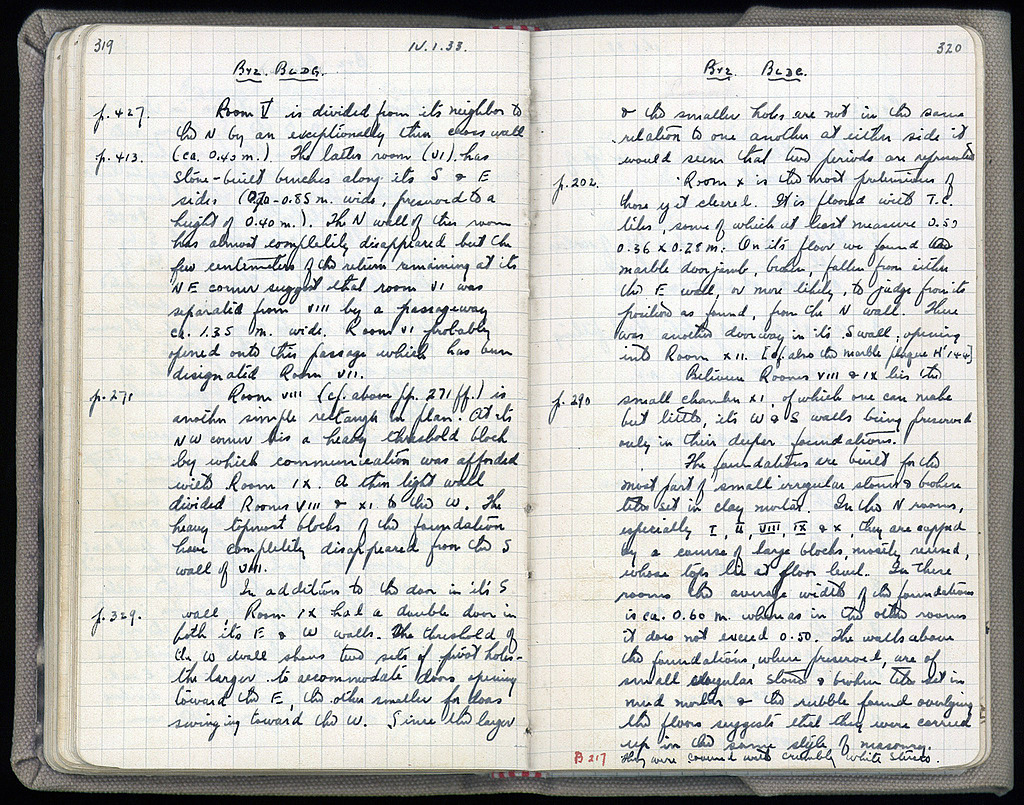 319
IV.1.33.
Byz. Bldg.
p. 427.
Room V is divided from its neighbor to
the N by an exceptionally thin cross wall
p. 413.
(ca. 0.40 m.) The latter room (VI) has
stone-built benches along its S & E
sides (0.70-0.85 m. wide, preserved to a
height of 0.40 m.). The N wall of this room
has almost completely disappeared but the
few centimeters of the return remaining at its
NE corner suggest that room VI was
separated from VIII by a passageway
ca. 1.35 m. wide. Room VI probably
opened onto this passage which has been
designated Room VII.
p. 271
Room VIII (cf. above pp. 271 ff.) is
another simple rectangle in plan. At its
NW corner lies a heavy threshold block
by which communication was afforded
with Room IX. A thin light wall
divided Rooms VIII & XI to the W. The
heavy topmost blocks of the foundation
have completely disappeared from the S
wall of VIII.
In addition to the door in its S
p. 329.
wall Room IX had a double door in
both its E & W walls. The threshold of
the W wall shows two sets of pivot holes-
the larger to accommodate doors opening
toward the E, the other smaller for doors
swinging toward the W. Since the larger
320
Byz. Bldg.
& the smaller holes are not in the same
relation to one another at either side it
would seem that two periods are represented
p. 202.
Room X is the most pretentious of
those yet cleared. It is floored with T.C.
tiles, some of which at least measure 0.50
0.36 x 0.28 m. On its floor we found
marble door jamb, broken, fallen from either
the E wall, or more likely, to judge from its
position as found, from the N wall. There
was another doorway in its S wall, opening
into Room XII. [cf. also the marble plaque H' 144]
Between Rooms VIII & IX lies the
p. 290
small chamber XI, of which one can make
but little, its W & S walls being preserved
only in their deeper foundations.
The foundations are built for the
most part of small irregular stones & broken
tiles set in clay mortar. In the N rooms,
especially I, II, VIII, IX & X, they are capped
by a course of large blocks, mostly reused,
whose tops lie at floor level. In these
rooms the average width of the foundations
is ca. 0.60 m. whereas in the other rooms
it does not exceed 0.50. The walls above
the foundations, where preserved, are of
small irregular stones & broken tiles set in
mud mortar & the rubble found overlying
the floors suggests that they were carried
up in the same style of masonry.
B 217
They were covered with crumbly white stucco.